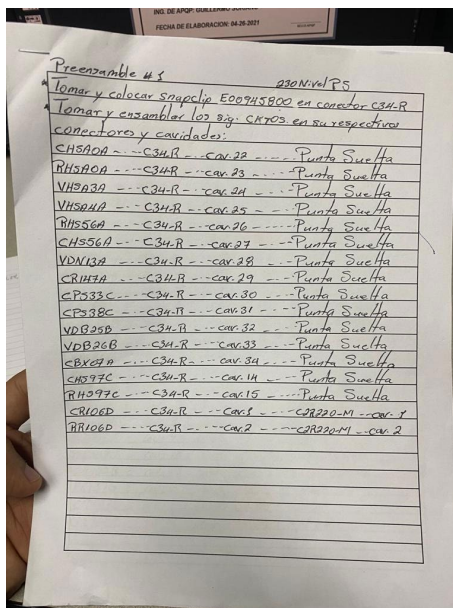 ING. DE APQP: GUILLERMO
FECHA DE ELABORACION: 04-26-2021
Preensamble #1 230 Nivel PS
* Tomar y colocar snapclip E00945800 en conector C34-R
* Tomar y ensamblar los sig. CKTOS. en su respectivos
conectores y cavidades:
CH5A0A --- C34-R --- cav. 22 ---- Punta Suelta
RH5A0A --- C34-R --- cav. 23 ---- Punta Suelta
VH5A3A --- C34-R --- cav. 24 ---- Punta Suelta
VH5A4A --- C34-R --- cav. 25 ---- Punta Suelta
RH556A --- C34-R --- cav. 26 ---- Punta Suelta
CH556A --- C34-R --- cav. 27 ---- Punta Suelta
VDN13A --- C34-R --- cav. 28 ---- Punta Suelta
CR147A --- C34-R --- cav. 29 ---- Punta Suelta
CP533C --- C34-R --- cav. 30 ---- Punta Suelta
CP538C --- C34-R --- cav. 31 ---- Punta Suelta
VDB25B --- C34-R --- cav. 32 ---- Punta Suelta
VDB26B --- C34-R --- cav. 33 ---- Punta Suelta
CBX67A --- C34-R --- cav. 34 ---- Punta Suelta
CH597C --- C34-R --- cav. 14 ---- Punta Suelta
RH597C --- C34-R --- cav. 15 ---- Punta Suelta
CR106D --- C34-R --- cav. 1 ---- C2R220-M --- cav. 1
RR106D --- C34-R --- cav. 2 ---- C2R220-M --- cav. 2